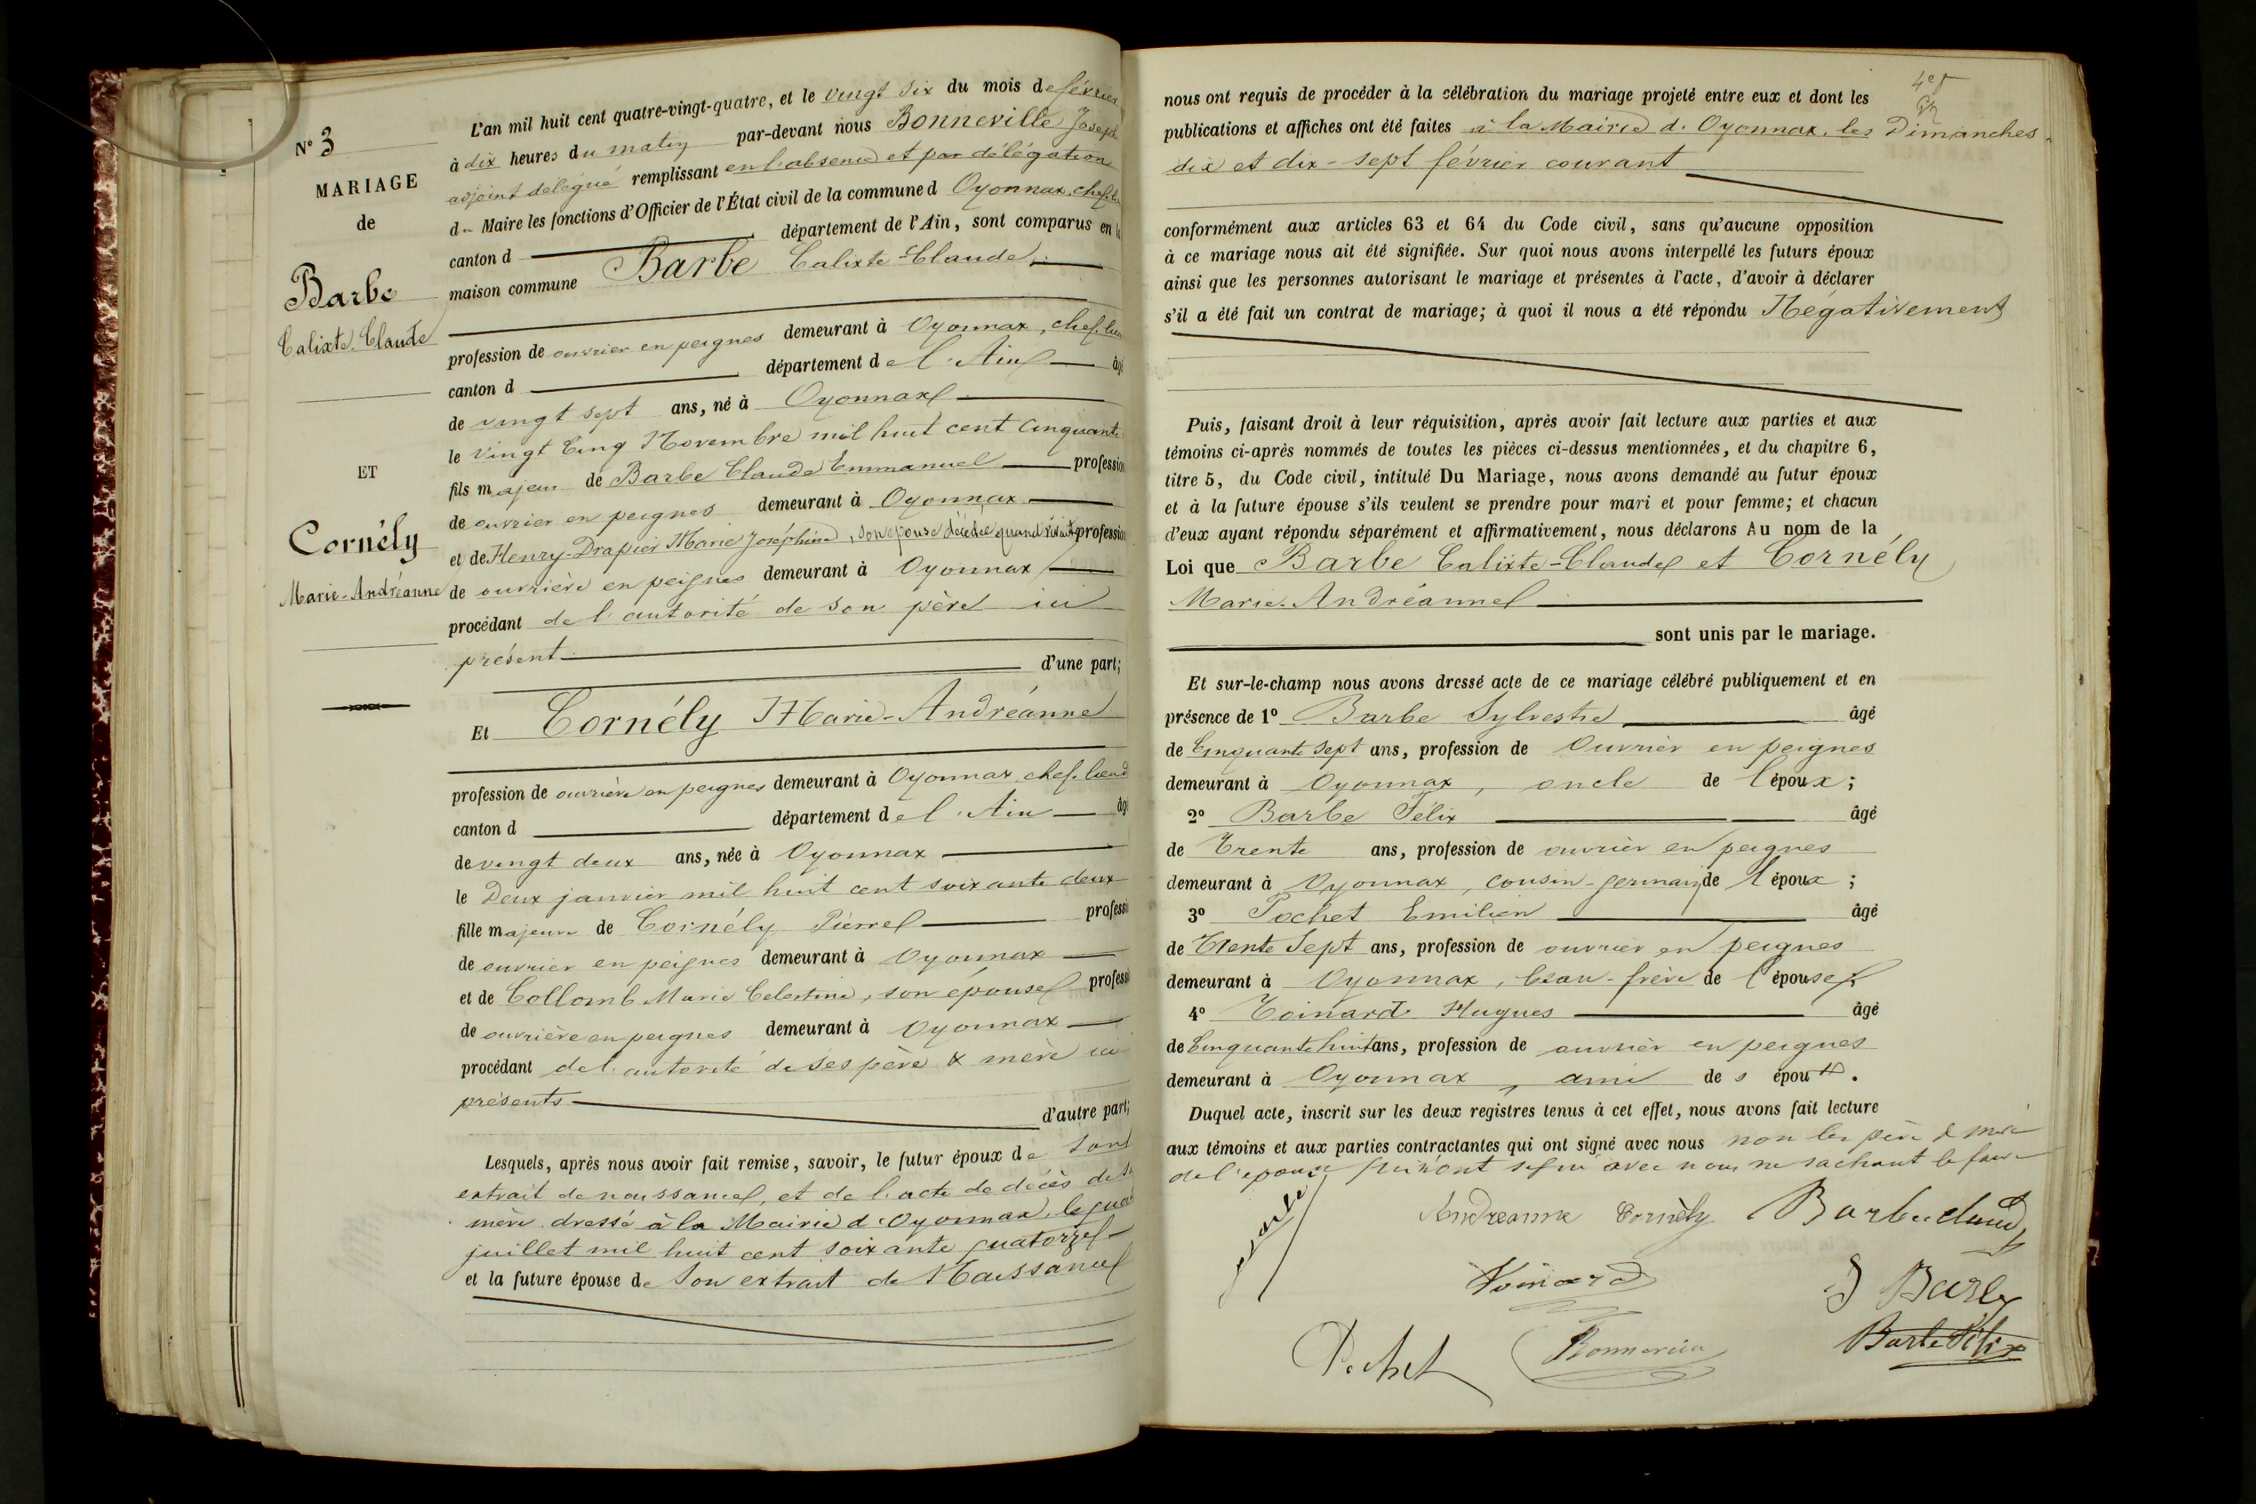 N° 3
MARIAGE
de
Barbe
Calixte Claude
ET
Cornély
Marie-Andréanne
L'an mil huit cent quatre-vingt-quatre, et le vingt six du mois de février
à dix heures du matin par-devant nous Bonneville Joseph
adjoint délégué remplissant en l'absence et par délégation
d Maire les fonctions d'Officier de l'État civil de la commune d Oyonnax, chef lieu
canton d département de l'Ain, sont comparus en la
maison commune Barbe Calixte-Claude
profession de ouvrier en peignes demeurant à Oyonnax, chef lieu
canton d département de l'Ain âgé
de vingt sept ans, né à Oyonnax
le vingt cinq Novembre mil huit cent cinquante
fils majeur de Barbe Claude Emmanuel profession
de ouvrier en peignes demeurant à Oyonnax
et de Henry-Drapier Marie Joséphine, son épouse décédée quand vivait profession
de ouvrière en peignes demeurant à Oyonnax
procédant de l'autorité de son père ici
présent d'une part;
Et Cornély Marie-Andréanne
profession de ouvrière en peignes demeurant à Oyonnax chef-lieu d
canton d département de l'Ain âgé
de vingt deux ans, née à Oyonnax
le Deux janvier mil huit cent soixante deux
fille majeure de Cornély Pierre professi
de ouvrier en peignes demeurant à Oyonnax
et de Collomb Marie Celestine, son épouse professi
de ouvrière en peignes demeurant à Oyonnax
procédant de l'autorité de ses père & mère ici
présents d'autre part;
Lesquels, après nous avoir fait remise, savoir, le futur époux de son
extrait de naissance, et de l'acte de décès de sa
mère dressé à la Mairie d'Oyonnax, le quatre
juillet mil huit cent soixante quatorze
et la future épouse de son extrait de Naissance
nous ont requis de procéder à la célébration du mariage projeté entre eux et dont les
publications et affiches ont été faites à la Mairie d'Oyonnax, les Dimanches
dix et dix-sept février courant
conformément aux articles 63 et 64 du Code civil, sans qu'aucune opposition
à ce mariage nous ait été signifiée. Sur quoi nous avons interpellé les futurs époux
ainsi que les personnes autorisant le mariage et présentes à l'acte, d'avoir à déclarer
s'il a été fait un contrat de mariage; à quoi il nous a été répondu Négativement
Puis, faisant droit à leur réquisition, après avoir fait lecture aux parties et aux
témoins ci-après nommés de toutes les pièces ci-dessus mentionnées, et du chapitre 6,
titre 5, du Code civil, intitulé Du Mariage, nous avons demandé au futur époux
et à la future épouse s'ils veulent se prendre pour mari et pour femme; et chacun
d'eux ayant répondu séparément et affirmativement, nous déclarons Au nom de la
Loi que Barbe Calixte-Claude et Cornély
Marie-Andréanne
sont unis par le mariage.
Et sur-le-champ nous avons dressé acte de ce mariage célébré publiquement et en
présence de 1° Barbe Sylvestre âgé
de Cinquante sept ans, profession de Ouvrier en peignes
demeurant à Oyonnax, oncle de l'époux;
2° Barbe Félix âgé
de Trente ans, profession de ouvrier en peignes
demeurant à Oyonnax, cousin-germain de l'époux;
3° Pochet Emilien âgé
de Trente Sept ans, profession de ouvrier en peignes
demeurant à Oyonnax, beau-frère de l'épouse;
4° Toinard Hugues âgé
de Cinquante huit ans, profession de ouvrier en peignes
demeurant à Oyonnax, ami des époux.
Duquel acte, inscrit sur les deux registres tenus à cet effet, nous avons fait lecture
aux témoins et aux parties contractantes qui ont signé avec nous non les père & mère
de l'épouse qui n'ont signé avec nous ne sachant le faire
Andréanne Cornély Barbe claude
Toinard Barbe
Pochet Bonneville Barbe Félix